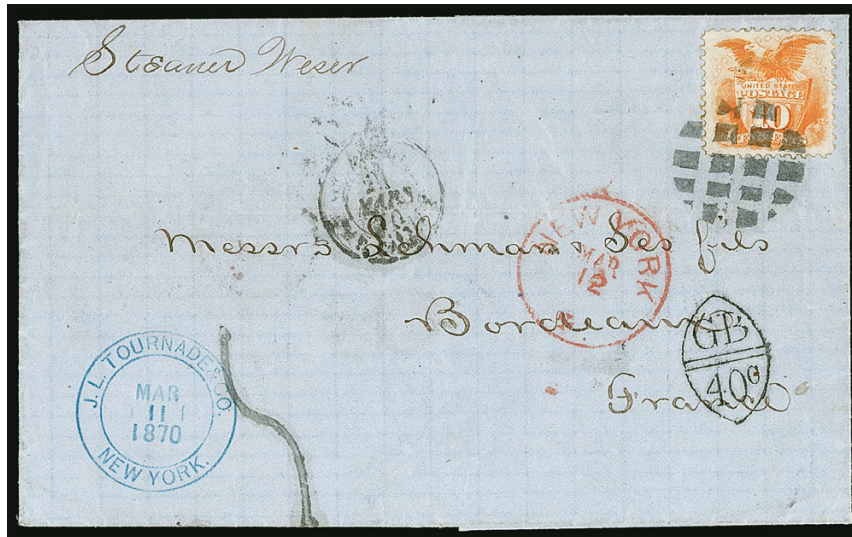 Steamer Weser
UNITED STATES
POSTAGE
10
MARS
NEW YORK
MAR
12
Messrs Lehmann & Ses fils
Bordeaux
France
GB
40c
J. L. TOURNADE & CO.
MAR
11
1870
NEW YORK.